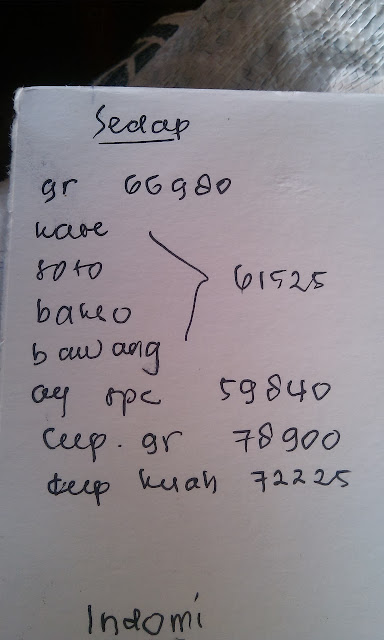 Sedap
gr 66980
kare
soto
bakso
bawang
61525
ay spc 59840
Cup. gr 78900
cup kuah 72225
Indomi